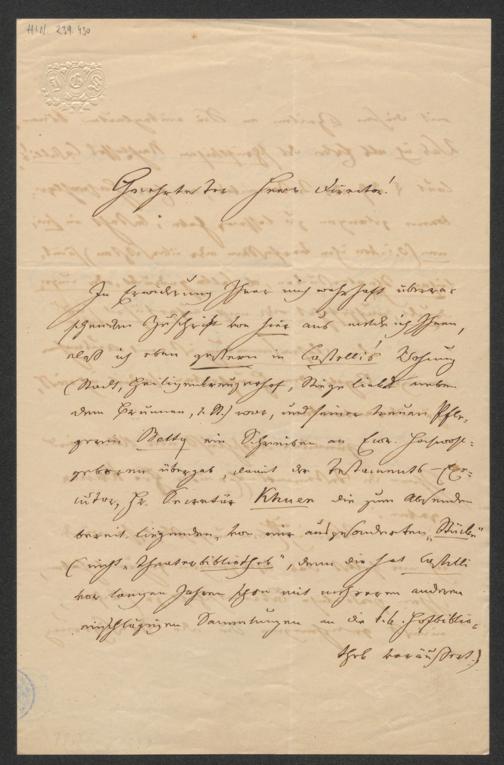 HIN 239.430
Geehrtester Herr Director!
In Erwiderung Ihrer mich wahrhaft überra-
schenden Zuschrift von hier aus, melde ich Ihnen,
daß ich eben gestern in Castelli's Wohnung
(Stadt, Heiligenkreuzerhof, Stiege links neben
dem Brunnen, 2. St.) war, und seiner treuen Pfle-
gerin Betty ein Schreiben an Euer Hochwohl-
geboren übergab, damit der Testaments-Exe-
cutor, Hr. Secretär Khuen die zum Absenden
bereit liegenden, von mir ausgesonderten „Stücke"
(nicht „Theaterbibliothek", denn die hat Castelli
vor langen Jahren schon mit mehreren anderen
einschlägigen Sammlungen an die k.k. Hofbiblio-
thek veräußert.)